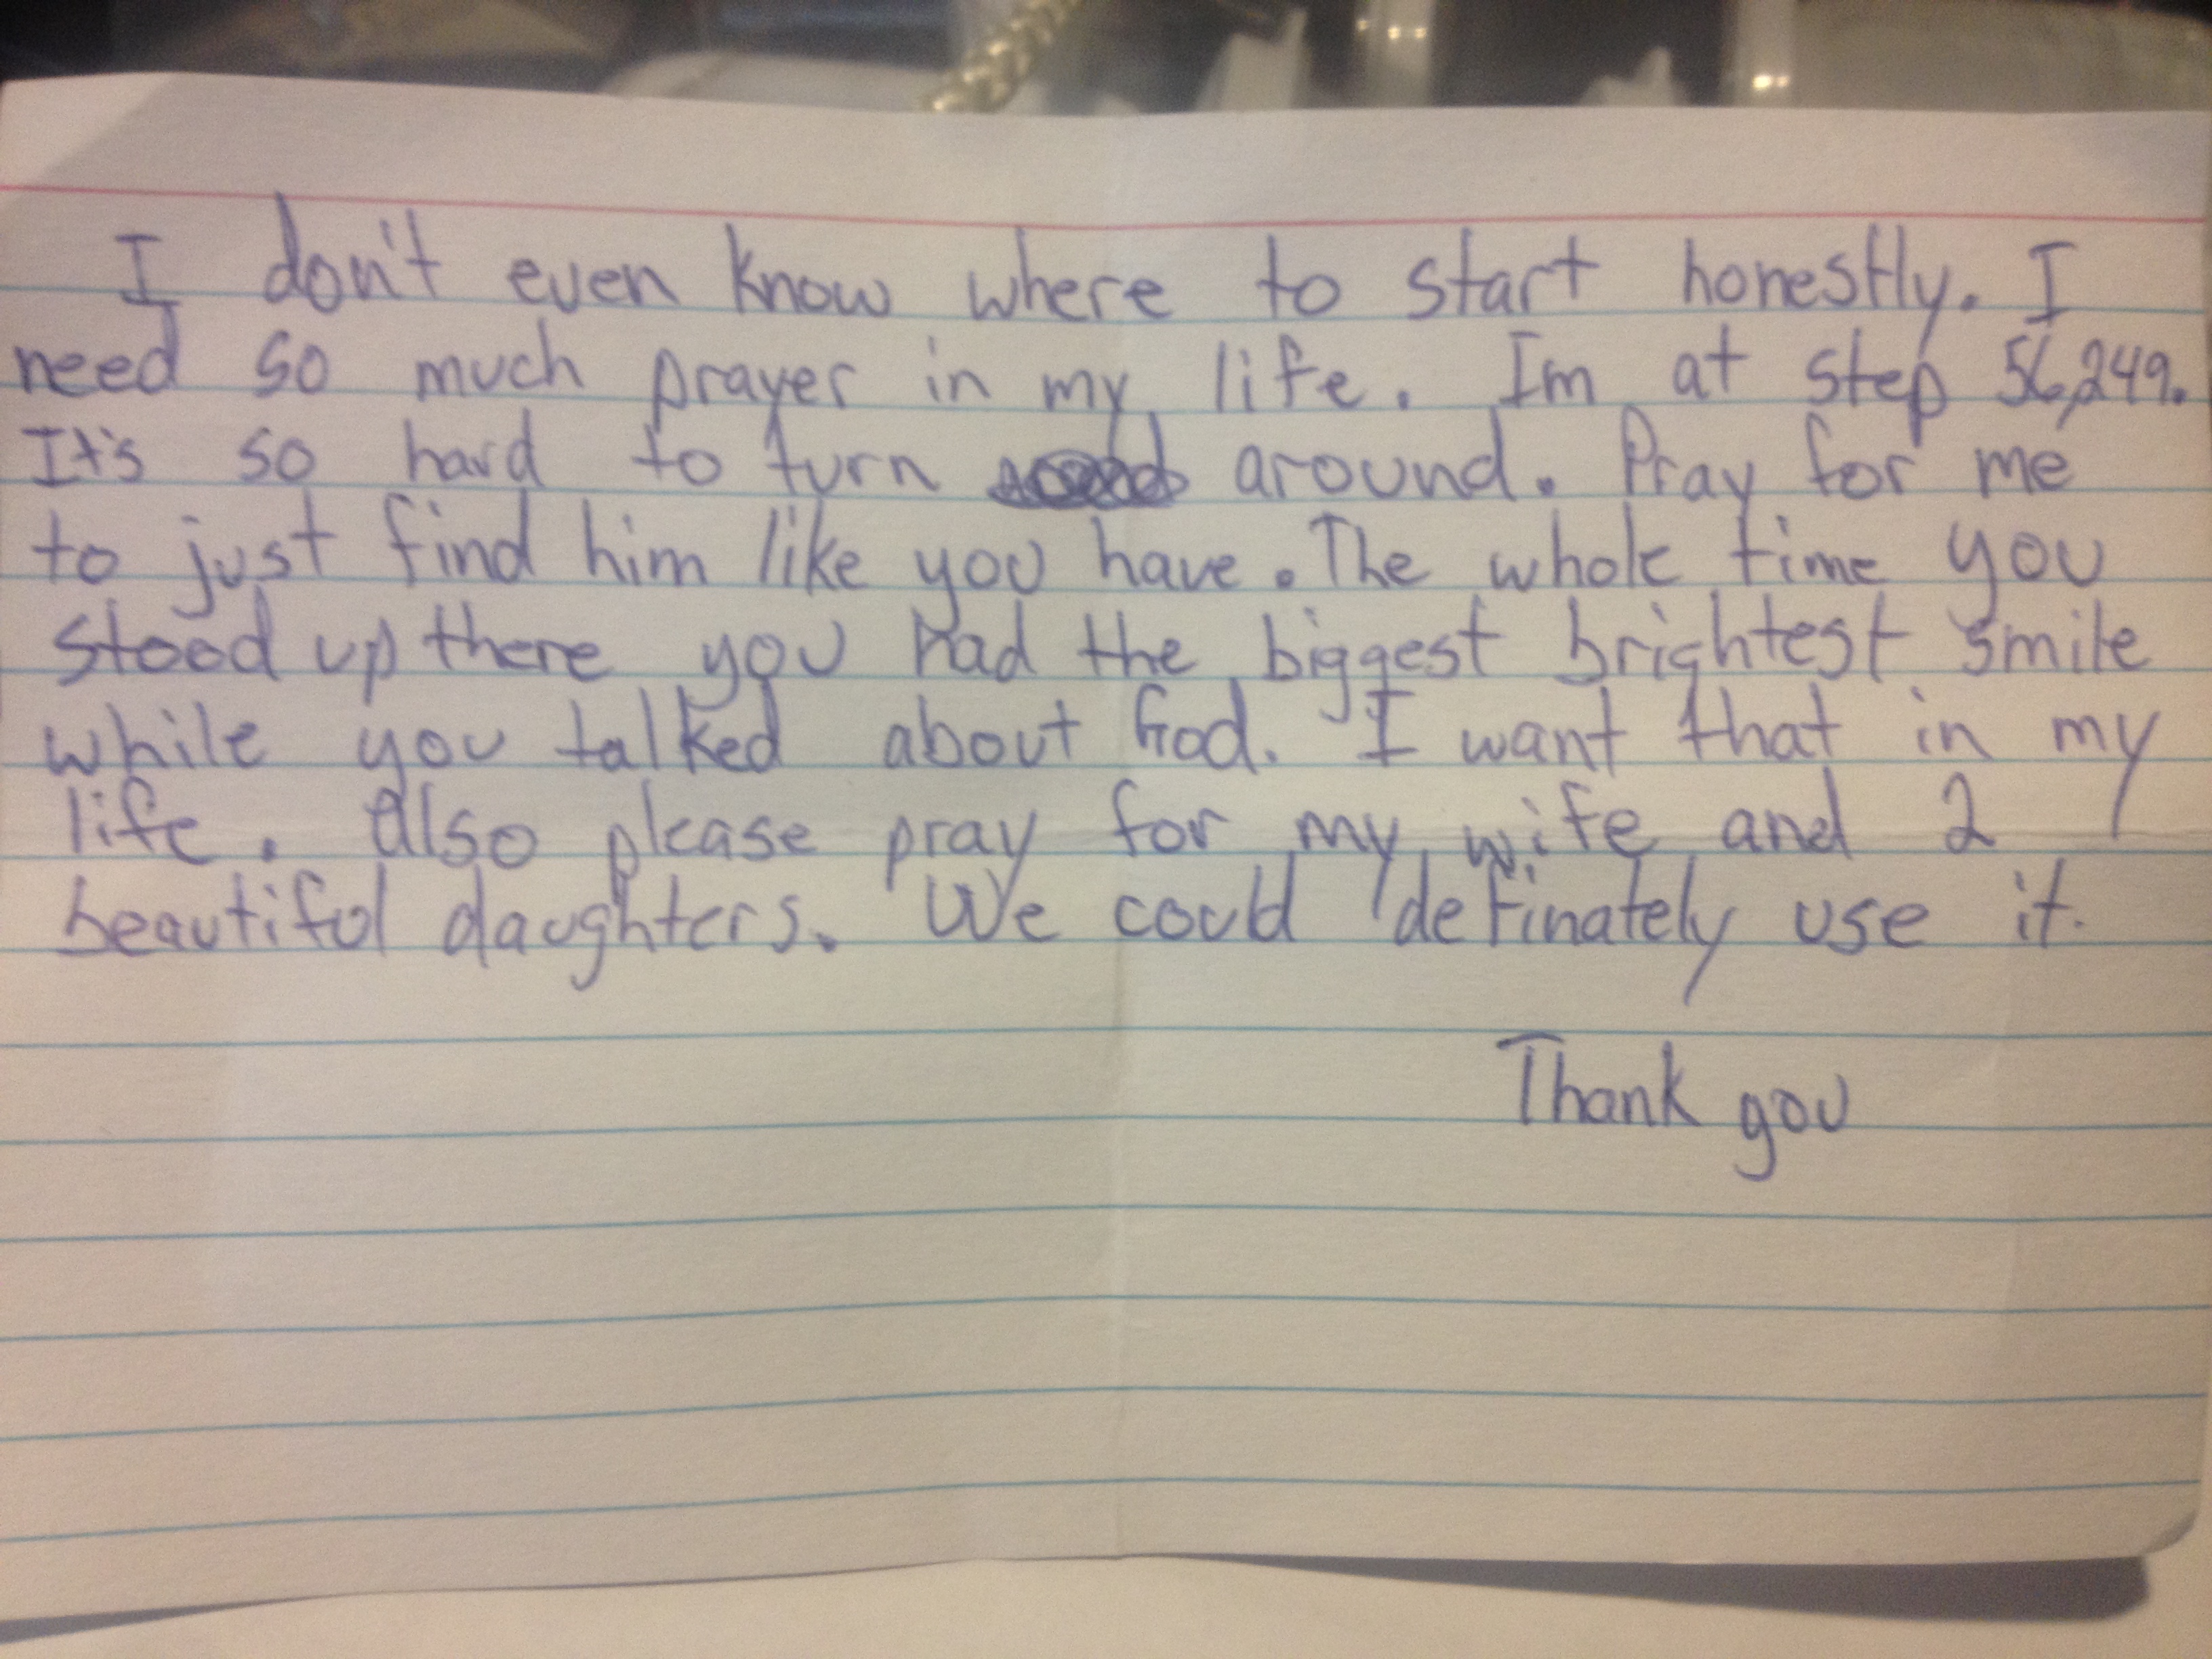 I don't even know where to start honestly. I
need so much prayer in my life. Im at step 56,249.
It's so hard to turn around. Pray for me
to just find him like you have. The whole time you
stood up there you had the biggest brightest smile
while you talked about God. I want that in my
life. Also please pray for my wife and 2
beautiful daughters. We could definately use it.
Thank you